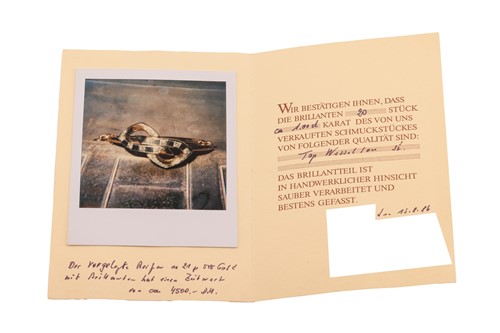 Der vorgelegte Reifen ca 21 gr 585 Gold
mit Brillanten hat einen Zeitwert
von ca 4500.- DM.
WIR BESTÄTIGEN IHNEN, DASS
DIE BRILLANTEN 20 STÜCK
ca KARAT DES VON UNS
VERKAUFTEN SCHMUCKSTÜCKES
VON FOLGENDER QUALITÄT SIND:
Top Wesselton
DAS BRILLANTTEIL IST
IN HANDWERKLICHER HINSICHT
SAUBER VERARBEITET UND
BESTENS GEFASST.